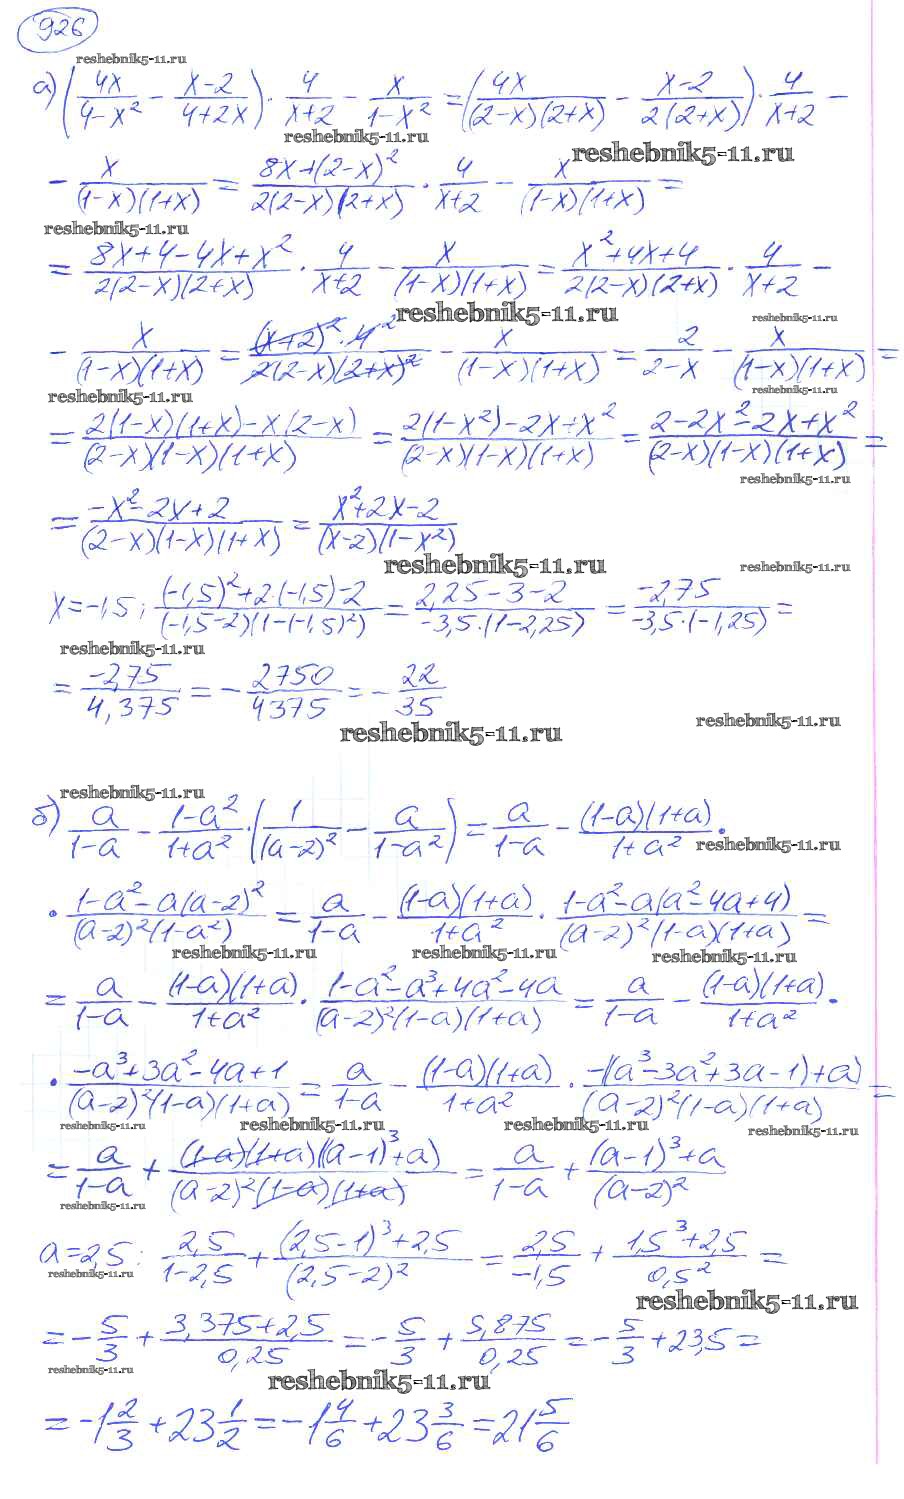 926
reshebnik5-11.ru
а) (4x/(4-x²) - (x-2)/(4+2x)) · 4/(x+2) - x/(1-x²) = (4x/((2-x)(2+x)) - (x-2)/(2(2+x))) · 4/(x+2) -
reshebnik5-11.ru reshebnik5-11.ru
- x/((1-x)(1+x)) = (8x+(2-x)²)/(2(2-x)(2+x)) · 4/(x+2) - x/((1-x)(1+x)) =
reshebnik5-11.ru
= (8x+4-4x+x²)/(2(2-x)(2+x)) · 4/(x+2) - x/((1-x)(1+x)) = (x²+4x+4)/(2(2-x)(2+x)) · 4/(x+2) -
reshebnik5-11.ru reshebnik5-11.ru
- x/((1-x)(1+x)) = ((x+2)²·4²)/(2(2-x)(2+x)²) - x/((1-x)(1+x)) = 2/(2-x) - x/((1-x)(1+x)) =
reshebnik5-11.ru reshebnik5-11.ru
= (2(1-x)(1+x)-x(2-x))/((2-x)(1-x)(1+x)) = (2(1-x²)-2x+x²)/((2-x)(1-x)(1+x)) = (2-2x²-2x+x²)/((2-x)(1-x)(1+x)) =
reshebnik5-11.ru
= (-x²-2x+2)/((2-x)(1-x)(1+x)) = (x²+2x-2)/((x-2)(1-x²))
reshebnik5-11.ru reshebnik5-11.ru
x=-1,5; ((-1,5)²+2·(-1,5)-2)/((-1,5-2)(1-(-1,5)²)) = (2,25-3-2)/(-3,5·(1-2,25)) = -2,75/(-3,5·(-1,25)) =
reshebnik5-11.ru
= -2,75/4,375 = - 2750/4375 = - 22/35
reshebnik5-11.ru reshebnik5-11.ru
reshebnik5-11.ru
б) a/(1-a) - (1-a²)/(1+a²) · (1/(a-2)² - a/(1-a²)) = a/(1-a) - ((1-a)(1+a))/(1+a²) ·
reshebnik5-11.ru
· (1-a²-a(a-2)²)/((a-2)²(1-a²)) = a/(1-a) - ((1-a)(1+a))/(1+a²) · (1-a²-a(a²-4a+4))/((a-2)²(1-a)(1+a)) =
reshebnik5-11.ru reshebnik5-11.ru reshebnik5-11.ru
= a/(1-a) - ((1-a)(1+a))/(1+a²) · (1-a²-a³+4a²-4a)/((a-2)²(1-a)(1+a)) = a/(1-a) - ((1-a)(1+a))/(1+a²) ·
· (-a³+3a²-4a+1)/((a-2)²(1-a)(1+a)) = a/(1-a) - ((1-a)(1+a))/(1+a²) · (-(a³-3a²+3a-1)+a)/((a-2)²(1-a)(1+a)) =
reshebnik5-11.ru reshebnik5-11.ru reshebnik5-11.ru reshebnik5-11.ru
= a/(1-a) + ((1-a)(1+a)((a-1)³+a))/((a-2)²(1-a)(1+a)) = a/(1-a) + ((a-1)³+a)/(a-2)²
reshebnik5-11.ru
a=2,5: 2,5/(1-2,5) + ((2,5-1)³+2,5)/(2,5-2)² = 2,5/-1,5 + (1,5³+2,5)/0,5² =
reshebnik5-11.ru reshebnik5-11.ru
= - 5/3 + (3,375+2,5)/0,25 = - 5/3 + 5,875/0,25 = - 5/3 + 23,5 =
reshebnik5-11.ru reshebnik5-11.ru
= -1 2/3 + 23 1/2 = -1 4/6 + 23 3/6 = 21 5/6